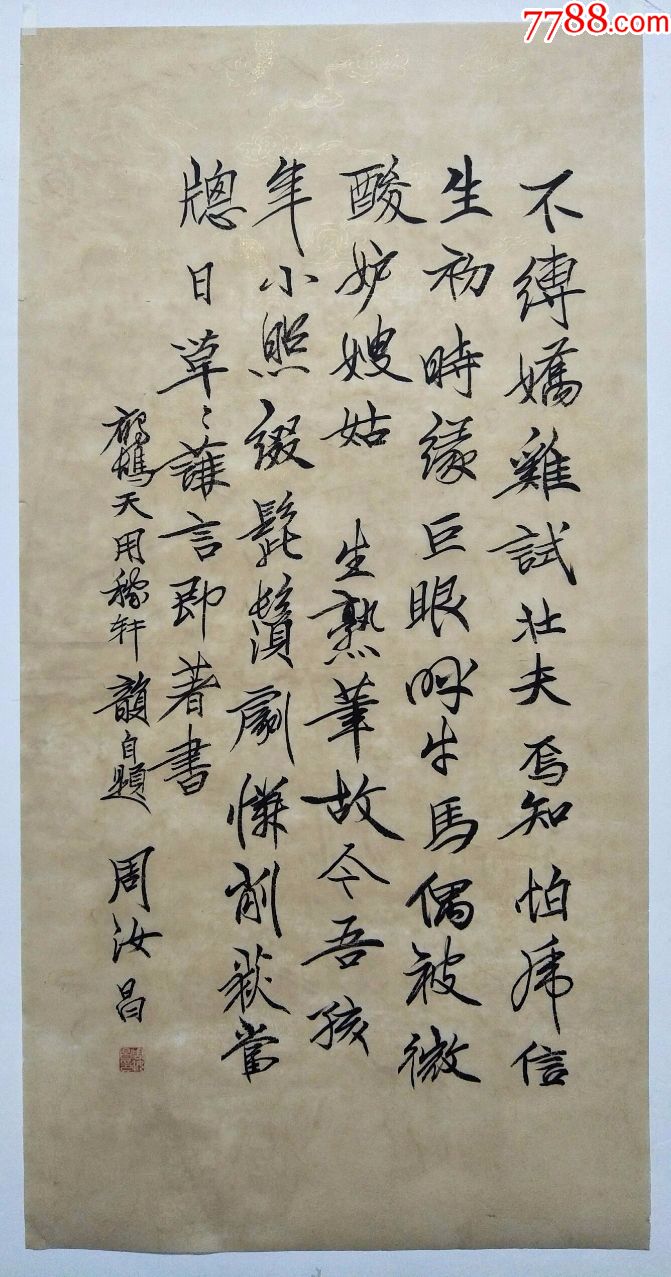 7788.com
不縛嬌雞試壯夫焉知怕虎信
生初時緣巨眼呼牛馬偶被微
酸妒嫂姑 生熟筆故今吾孩
年小照綴髭鬚劇憐削荻當
牕日草〻謙言即著書
鷓鴣天用稼軒韻自題
周汝昌